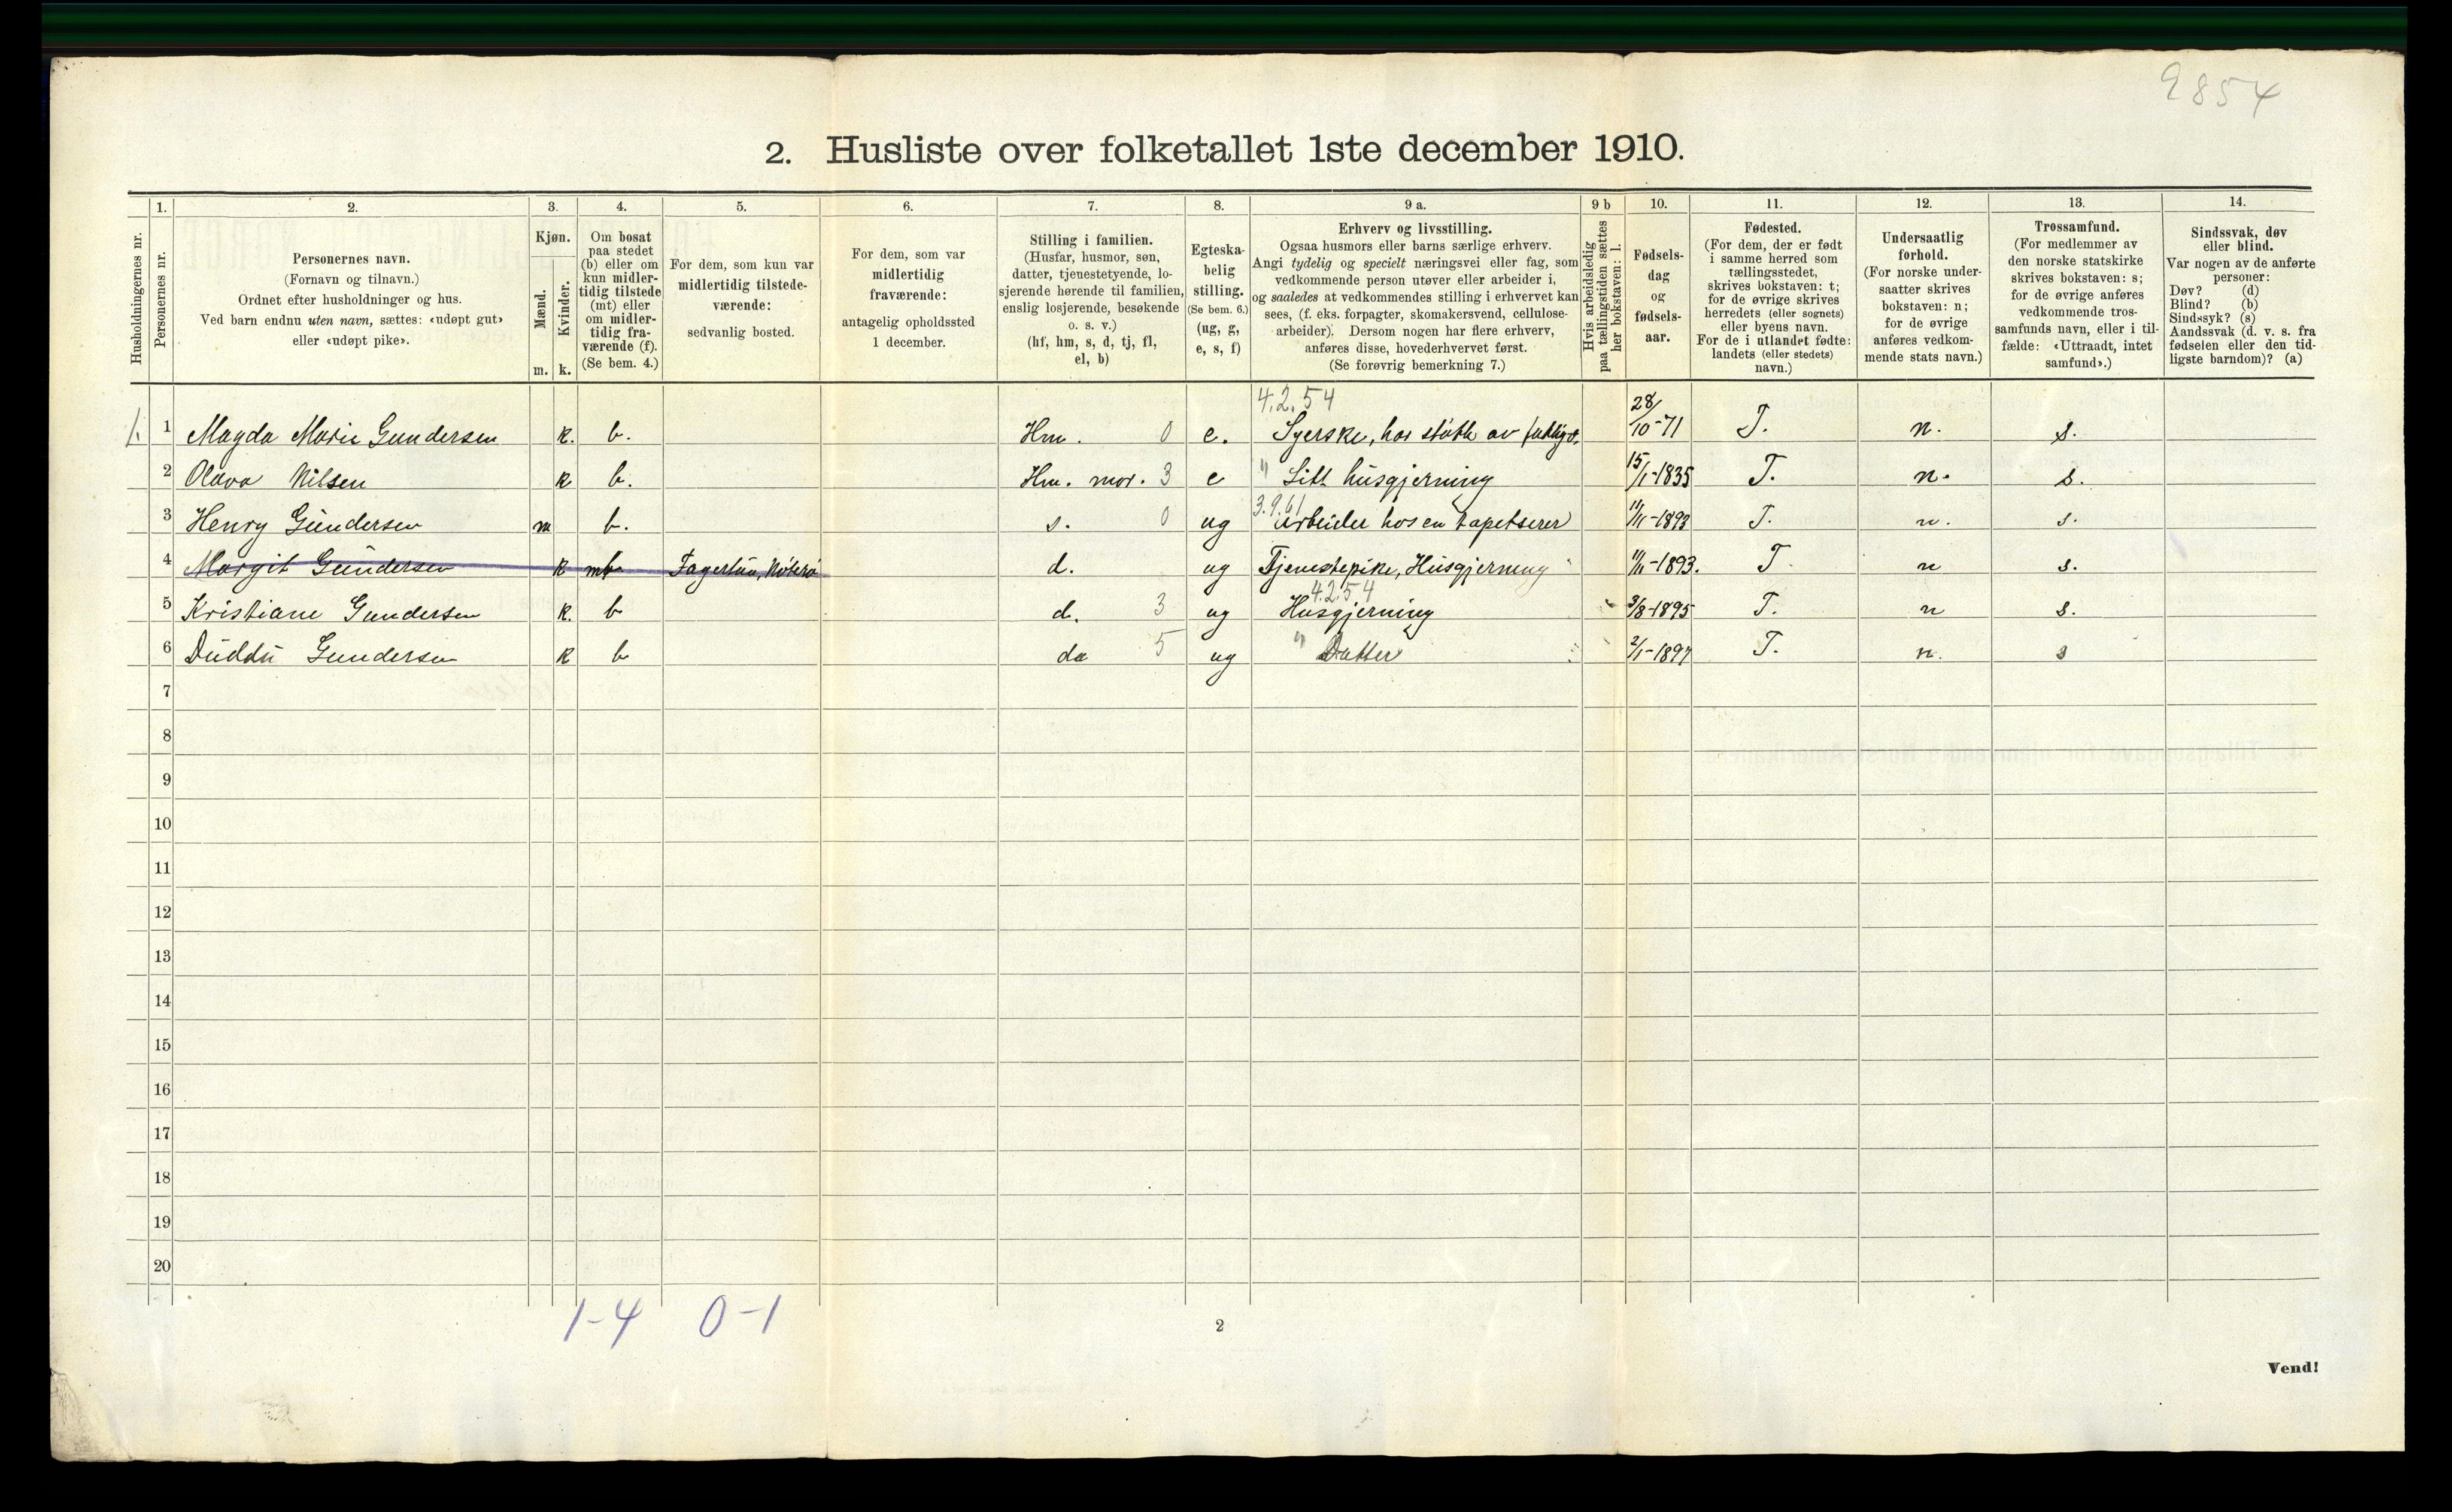 9854
2. Husliste over folketallet 1ste december 1910.
Husholdningernes nr.
1.
Personernes nr.
2.
Personernes navn.
(Fornavn og tilnavn.)
Ordnet efter husholdninger og hus.
Ved barn endnu uten navn, sættes: «udøpt gut»
eller «udøpt pike».
3.
Kjøn.
Mænd.
Kvinder.
m. k.
4.
Om bosat
paa stedet
(b) eller om
kun midler-
tidig tilstede
(mt) eller
om midler-
tidig fra-
værende (f).
(Se bem. 4.)
5.
For dem, som kun var
midlertidig tilstede-
værende:
sedvanlig bosted.
6.
For dem, som var
midlertidig
fraværende:
antagelig opholdssted
1 december.
7.
Stilling i familien.
(Husfar, husmor, søn,
datter, tjenestetyende, lo-
sjerende hørende til familien,
enslig losjerende, besøkende
o. s. v.)
(hf, hm, s, d, tj, fl,
el, b)
8.
Egteska-
belig
stilling.
(Se bem. 6.)
(ug, g,
e, s, f)
9 a.
Erhverv og livsstilling.
Ogsaa husmors eller barns særlige erhverv.
Angi tydelig og specielt næringsvei eller fag, som
vedkommende person utøver eller arbeider i,
og saaledes at vedkommendes stilling i erhvervet kan
sees, (f. eks. forpagter, skomakersvend, cellulose-
arbeider). Dersom nogen har flere erhverv,
anføres disse, hovederhvervet først.
(Se forøvrig bemerkning 7.)
9 b
Hvis arbeidsledig
paa tællingstiden sættes
her bokstaven: l.
10.
Fødsels-
dag
og
fødsels-
aar.
11.
Fødested.
(For dem, der er født
i samme herred som
tællingsstedet,
skrives bokstaven: t;
for de øvrige skrives
herredets (eller sognets)
eller byens navn.
For de i utlandet fødte:
landets (eller stedets)
navn.)
12.
Undersaatlig
forhold.
(For norske under-
saatter skrives
bokstaven: n;
for de øvrige
anføres vedkom-
mende stats navn.)
13.
Trossamfund.
(For medlemmer av
den norske statskirke
skrives bokstaven: s;
for de øvrige anføres
vedkommende tros-
samfunds navn, eller i til-
fælde: «Uttraadt, intet
samfund».)
14.
Sindssvak, døv
eller blind.
Var nogen av de anførte
personer:
Døv? (d)
Blind? (b)
Sindssyk? (s)
Aandssvak (d. v. s. fra
fødselen eller den tid-
ligste barndom)? (a)
4.2.54
1. 1 Magda Marie Gundersen k. b. Hm. 0 e. Syerske, har støtte av 28/10-71 T. n. s.
2 Olava Nilsen k b. Hm. mor. 3 e " Litt husgjerning 15/1-1835 T. n. s.
3.9.61
3 Henry Gundersen m b. s. 0 ug Arbeider hos en tapetserer 11/11-1893 T. n. s.
4 Margit Gundersen k Fagertun, Nøterø d. ug Tjenestepike, Husgjerning 11/11-1893. T n s.
4.2.54
5 Kristiane Gundersen k. b d. 3 ug Husgjerning 3/8-1895 T. n s.
6 Duddu Gundersen k b da 5 ug " Datter 2/1-1897 T. n. s
7
8
9
10
11
12
13
14
15
16
17
18
19
20
1-4 0-1
2
Vend!